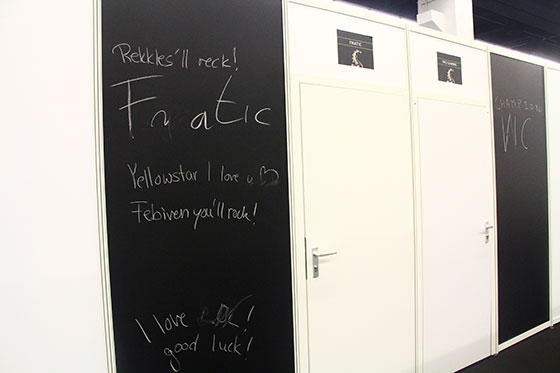 Rekkles'll reck!
Fnatic
Yellowstar I love u
Febiven you'll rock!
I love
good luck!
FNATIC
CHAMPION
VIC